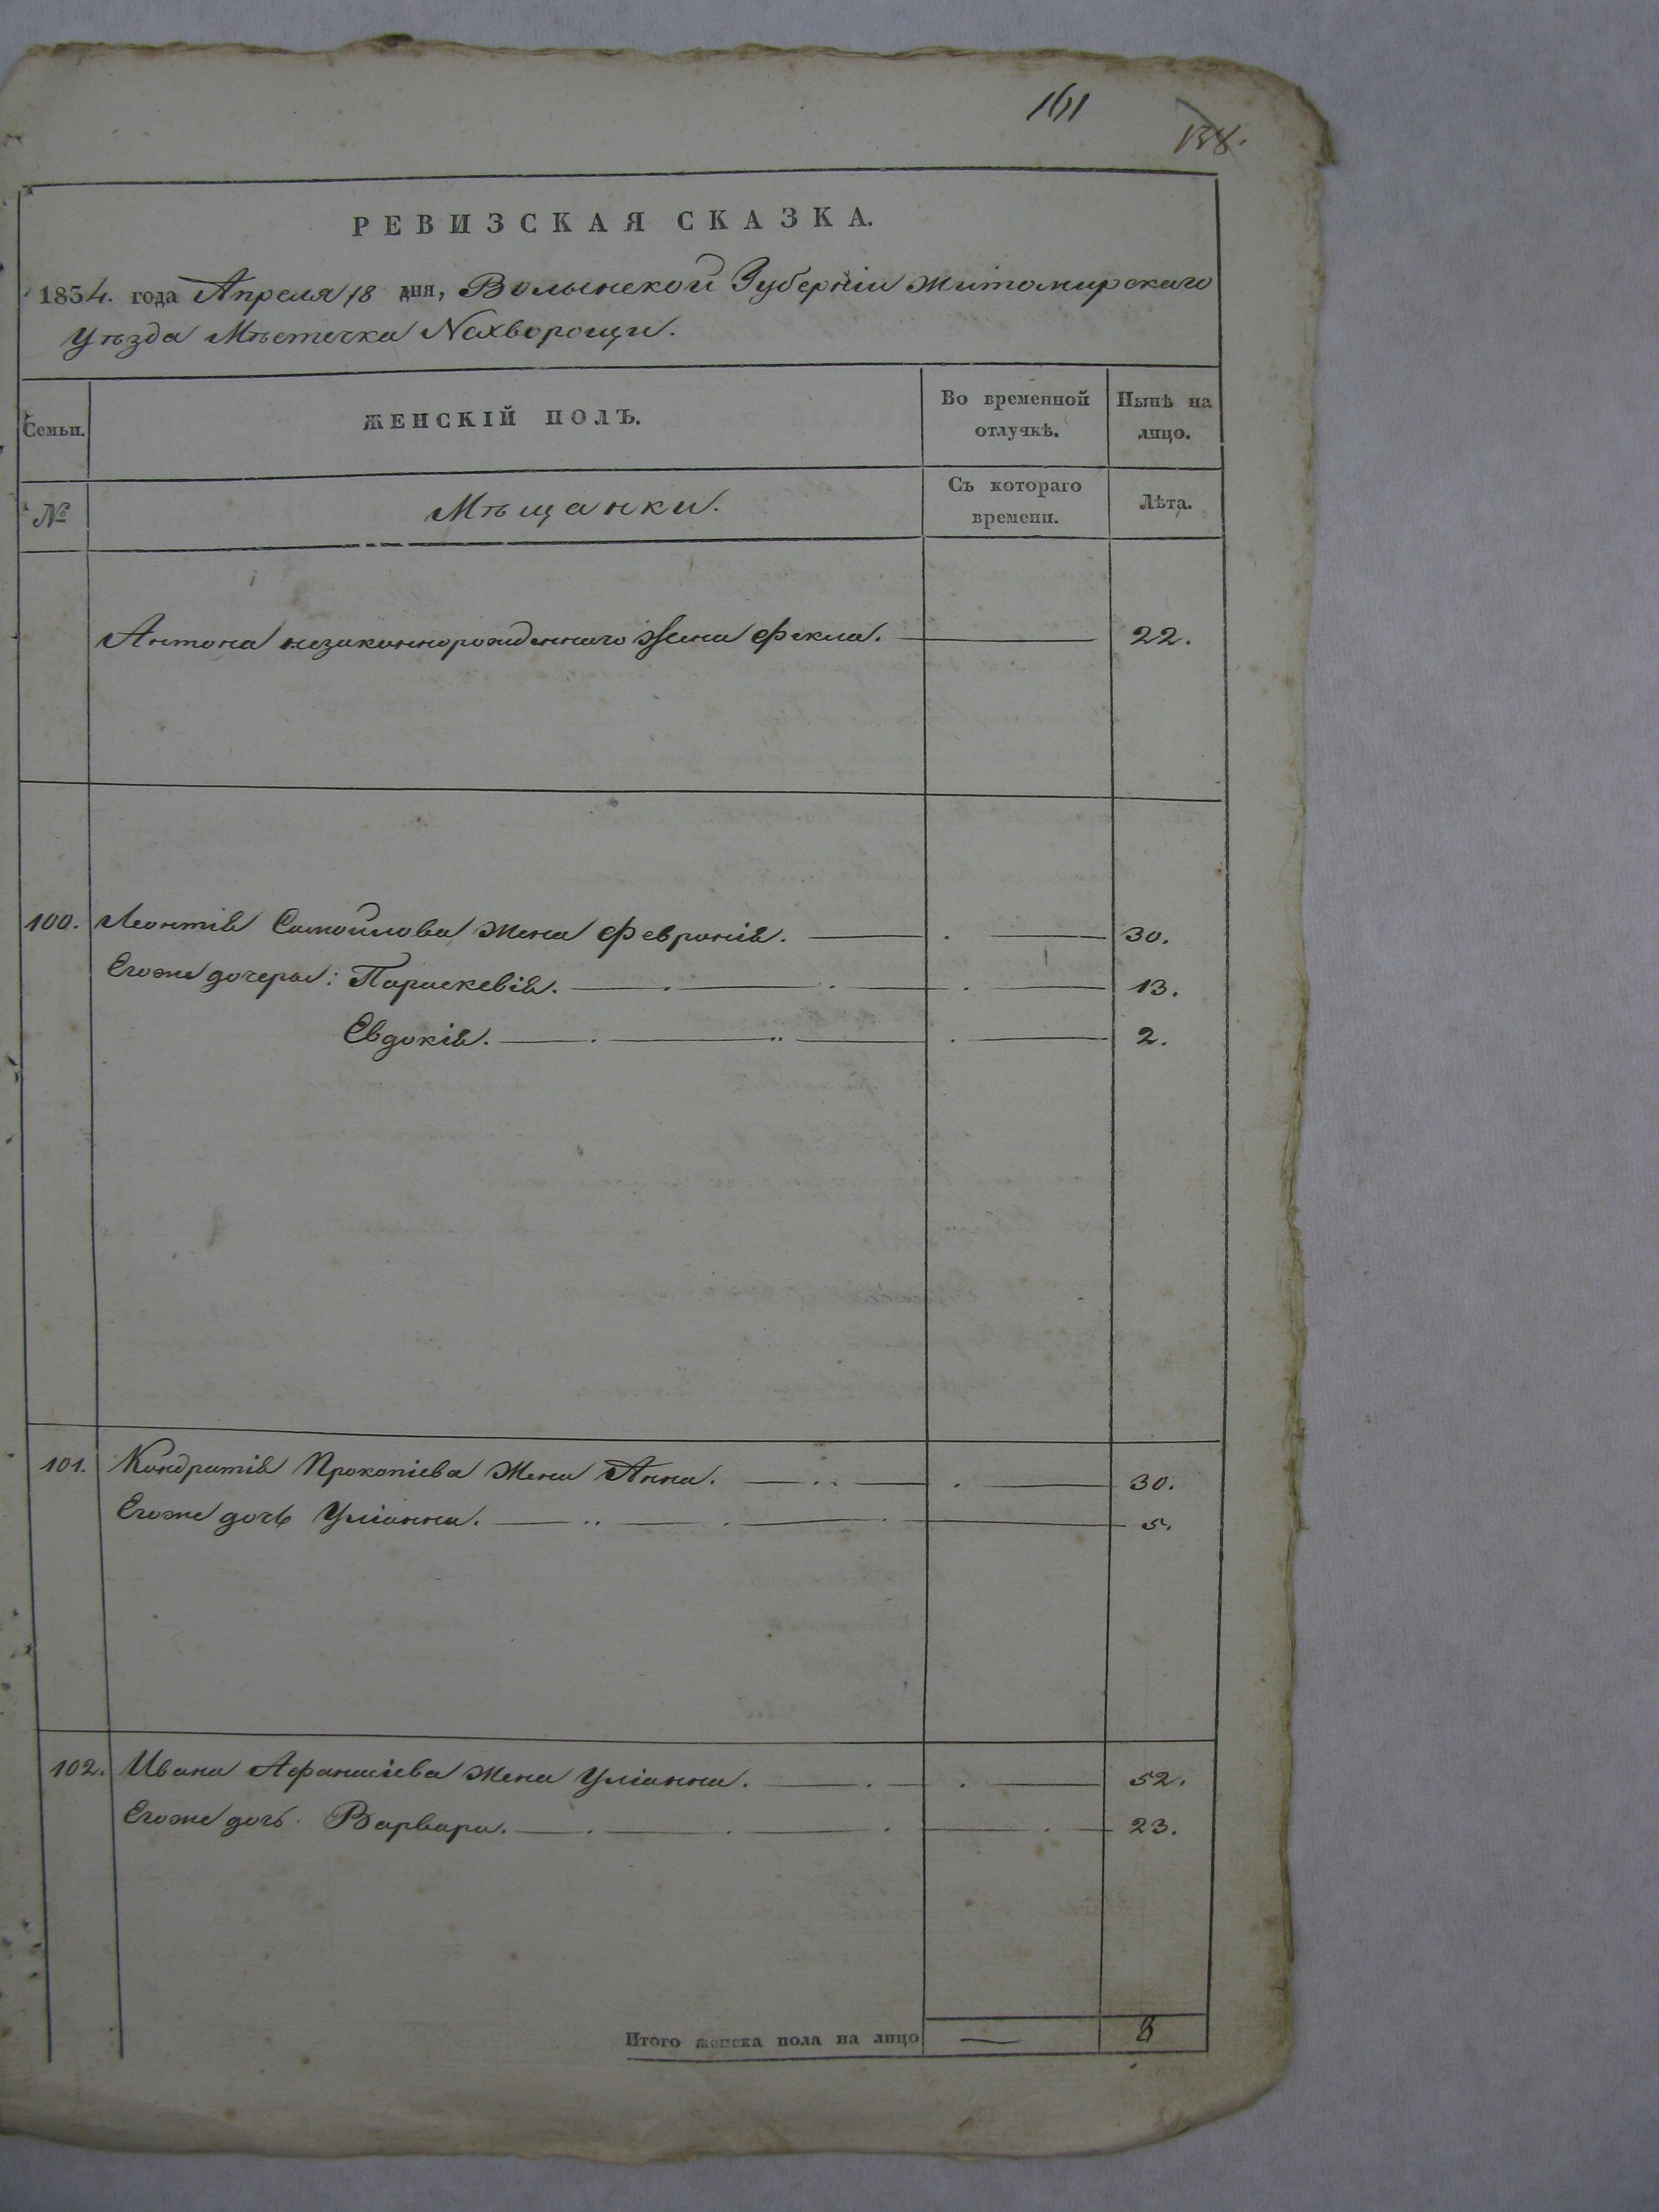 161
138.
РЕВИЗСКАЯ СКАЗКА.
1834. года Апреля 18 дня, Волынской Губерніи Житомирскаго
Уѣзда Мѣстечка Нехворощи.
Семьи.
ЖЕНСКІЙ ПОЛЪ.
Во временной отлучкѣ.
Нынѣ на лицо.
№
Мѣщанки.
Съ котораго времени.
Лѣта.
Антона незаконнорожденнаго Жена Фекла. 22.
100. Леонтія Самойлова Жена Февронія. 30.
Егоже дочеры: Параскевія. 13.
Евдокія. 2.
101. Кондратія Прокопіева Жена Анна. 30.
Егоже дочь Уліанна. 5.
102. Ивана Афанасіева Жена Уліанна. 52.
Егоже дочь Варвара. 23.
Итого женска пола на лицо — 8